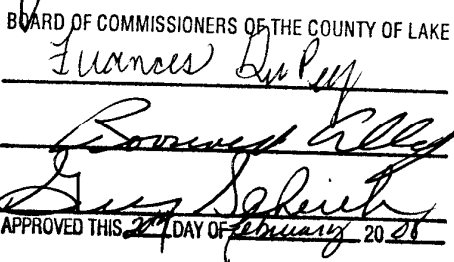 BOARD OF COMMISSIONERS OF THE COUNTY OF LAKE
Frances DuPey
Roosevelt Allen
Gerry Scheub
APPROVED THIS 2nd DAY OF February 20 06